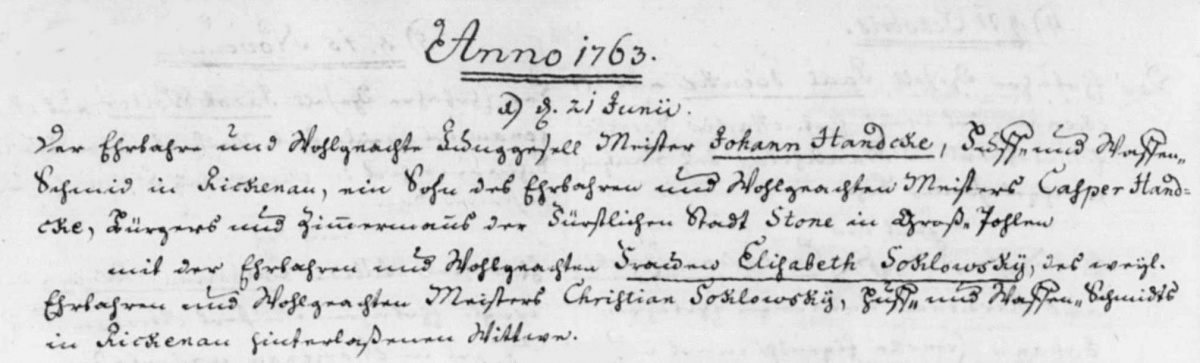 Anno 1763.
1) d. 21 Junii.
Der Ehrbahre und Wohlgeachte Junggesell Meister Johann Handcke, Huff- und Waffen-
Schmid in Rickenau, ein Sohn des Ehrbahren und Wohlgeachten Meisters Casper Hand-
cke, Bürgers und Zimmermañs der Fürstlichen Stadt Stone in Groß-Pohlen
mit der Ehrbahren und Wohlgeachten Frauen Elisabeth Soklowsky, des weyl.
Ehrbahren und Wohlgeachten Meisters Christian Soklowsky, Huff- und Waffen-Schmidts
in Rickenau hinterlaßenen Wittwe.